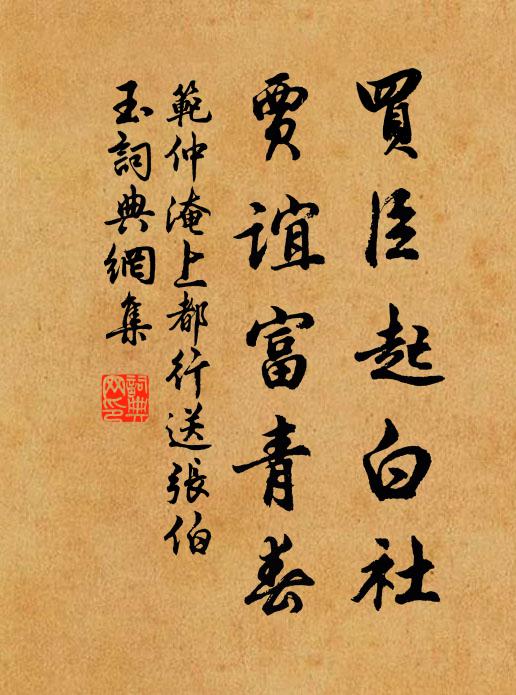 買臣起白社
賈誼富青春
範仲淹上都行送張伯
玉詞典網集
詞典
网印